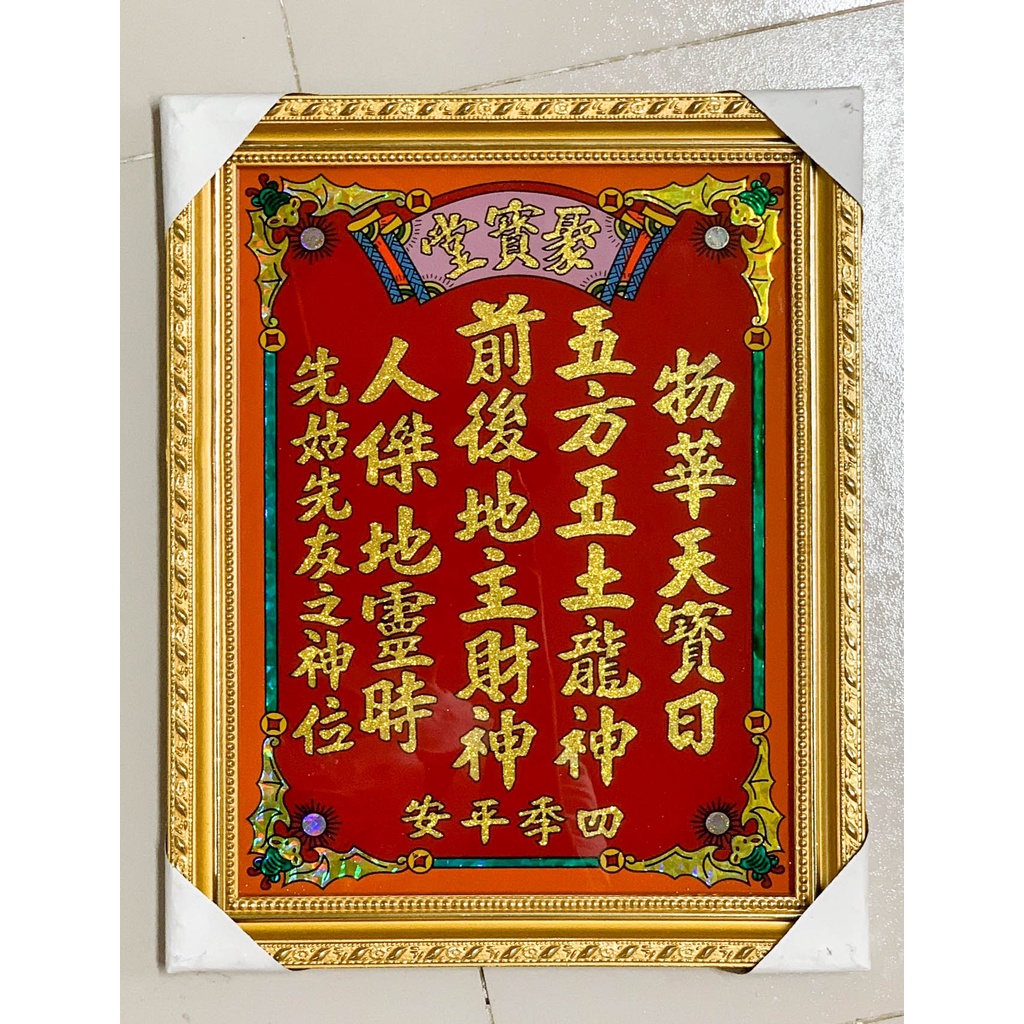 聚寳堂
物華天寳日
五方五土龍神
前後地主財神
人傑地靈時
先姑先友之神位
四季平安